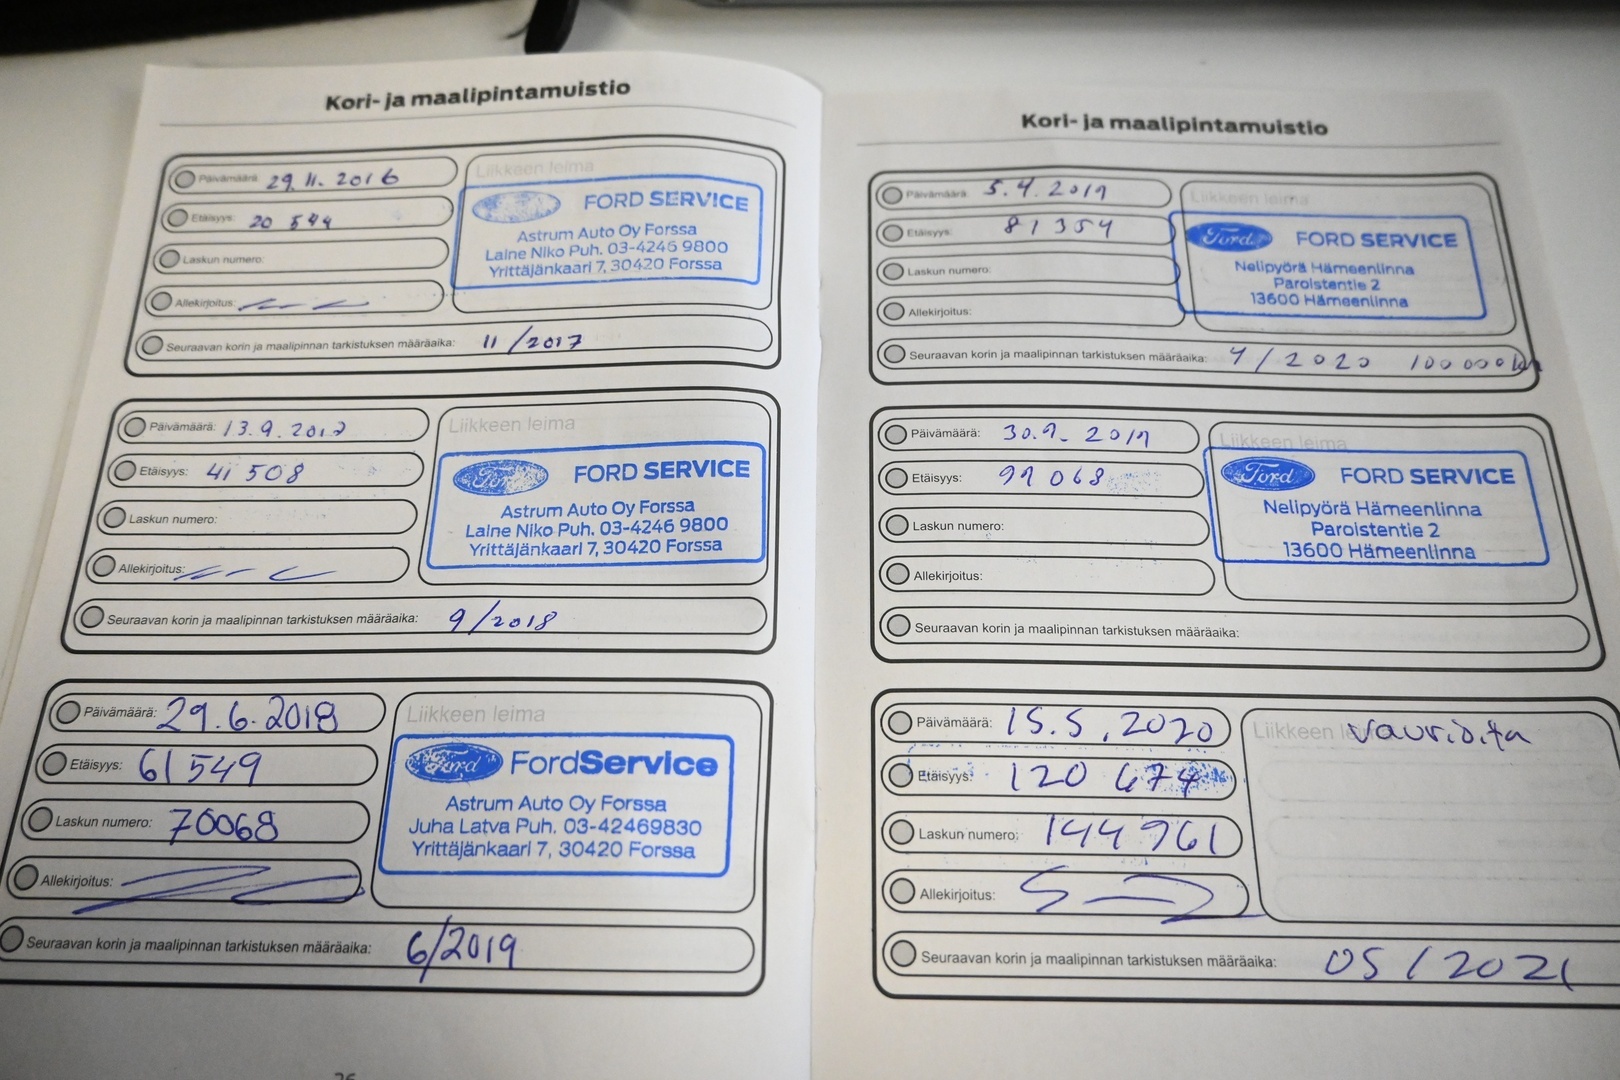 Kori- ja maalipintamuistio
Päivämäärä: 29.11.2016
Etäisyys: 20 544
Laskun numero:
Allekirjoitus:
Liikkeen leima
FORD SERVICE
Astrum Auto Oy Forssa
Laine Niko Puh. 03-4246 9800
Yrittäjänkaari 7, 30420 Forssa
Seuraavan korin ja maalipinnan tarkistuksen määräaika: 11/2017
Päivämäärä: 13.9.2017
Etäisyys: 41 508
Laskun numero:
Allekirjoitus:
Liikkeen leima
Ford FORD SERVICE
Astrum Auto Oy Forssa
Laine Niko Puh. 03-4246 9800
Yrittäjänkaari 7, 30420 Forssa
Seuraavan korin ja maalipinnan tarkistuksen määräaika: 9/2018
Päivämäärä: 29.6.2018
Etäisyys: 61 549
Laskun numero: 70068
Allekirjoitus:
Liikkeen leima
Ford FordService
Astrum Auto Oy Forssa
Juha Latva Puh. 03-42469830
Yrittäjänkaari 7, 30420 Forssa
Seuraavan korin ja maalipinnan tarkistuksen määräaika: 6/2019
Kori- ja maalipintamuistio
Päivämäärä: 5.4.2019
Etäisyys: 81354
Laskun numero:
Allekirjoitus:
Liikkeen leima
Ford FORD SERVICE
Nelipyörä Hämeenlinna
Paroistentie 2
13600 Hämeenlinna
Seuraavan korin ja maalipinnan tarkistuksen määräaika: 4/2020 100 000 km
Päivämäärä: 30.9.2019
Etäisyys: 99 068
Laskun numero:
Allekirjoitus:
Liikkeen leima
Ford FORD SERVICE
Nelipyörä Hämeenlinna
Paroistentie 2
13600 Hämeenlinna
Seuraavan korin ja maalipinnan tarkistuksen määräaika:
Päivämäärä: 15.5.2020
Etäisyys: 120 674
Laskun numero: 144961
Allekirjoitus:
Liikkeen
Seuraavan korin ja maalipinnan tarkistuksen määräaika: 05/2021